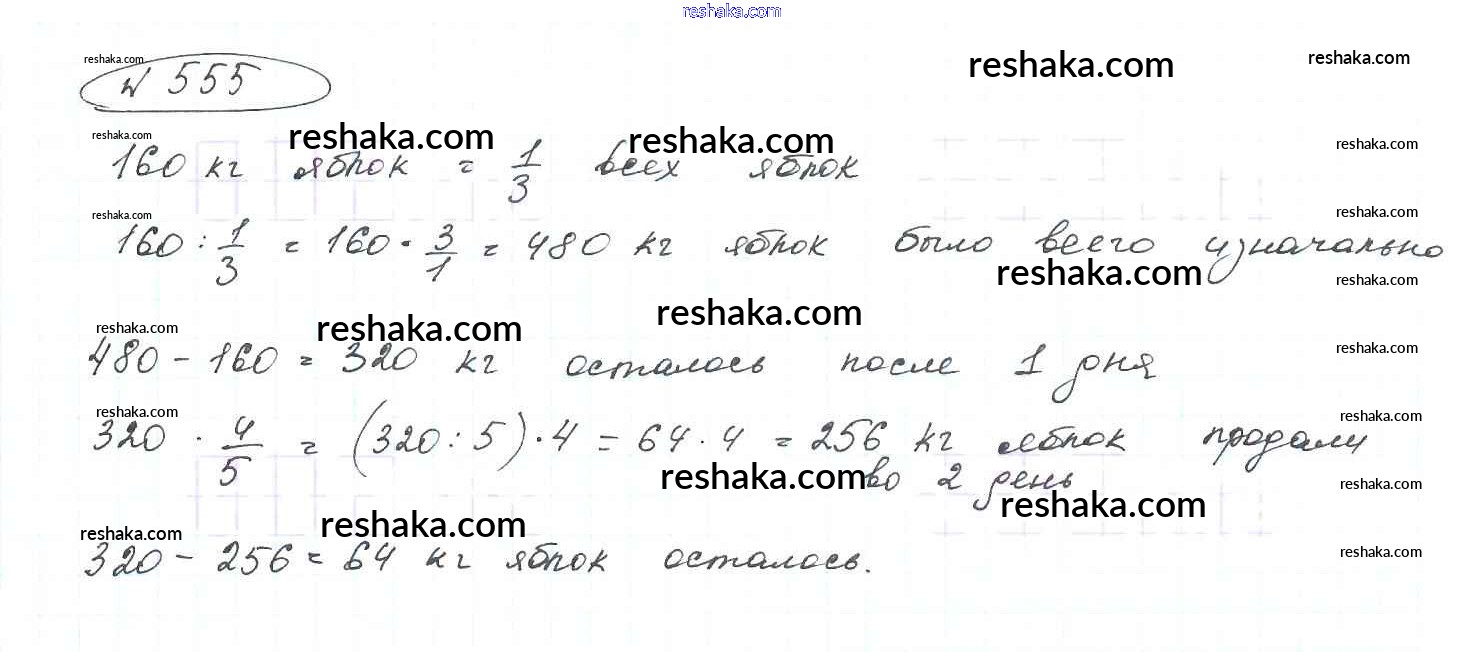 reshaka.com
reshaka.com reshaka.com
reshaka.com
№ 555
reshaka.com reshaka.com reshaka.com reshaka.com
160 кг яблок = 1/3 всех яблок
reshaka.com reshaka.com
160 : 1/3 = 160 · 3/1 = 480 кг яблок было всего изначально
reshaka.com reshaka.com
reshaka.com reshaka.com reshaka.com reshaka.com
480 - 160 = 320 кг осталось после 1 дня
reshaka.com reshaka.com
320 · 4/5 = (320 : 5) · 4 = 64 · 4 = 256 кг яблок продали
во 2 день
reshaka.com reshaka.com reshaka.com
reshaka.com reshaka.com reshaka.com
320 - 256 = 64 кг яблок осталось.